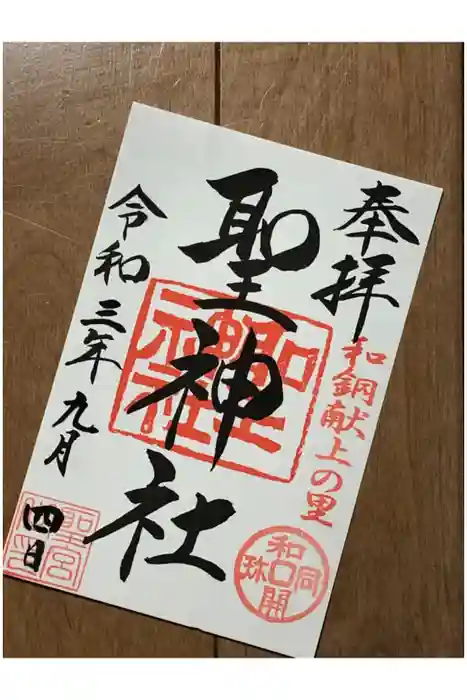 奉拝
和銅献上の里
聖神社
令和三年九月
四日
和同開珎
聖宮